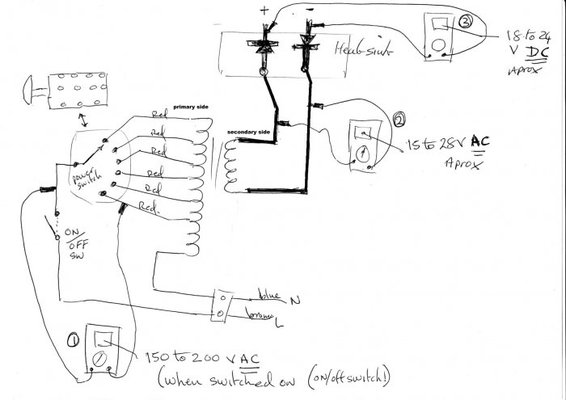 + -
Heat-sink
③
18 to 24
V DC
Aprox
primary side
secondary side
Red
Red
Red
Red
Red
power
switch
②
15 to 28V AC
Aprox
ON/
OFF
SW
blue N
brown L
①
150 to 200 V AC
(when switched on (on/off switch!)